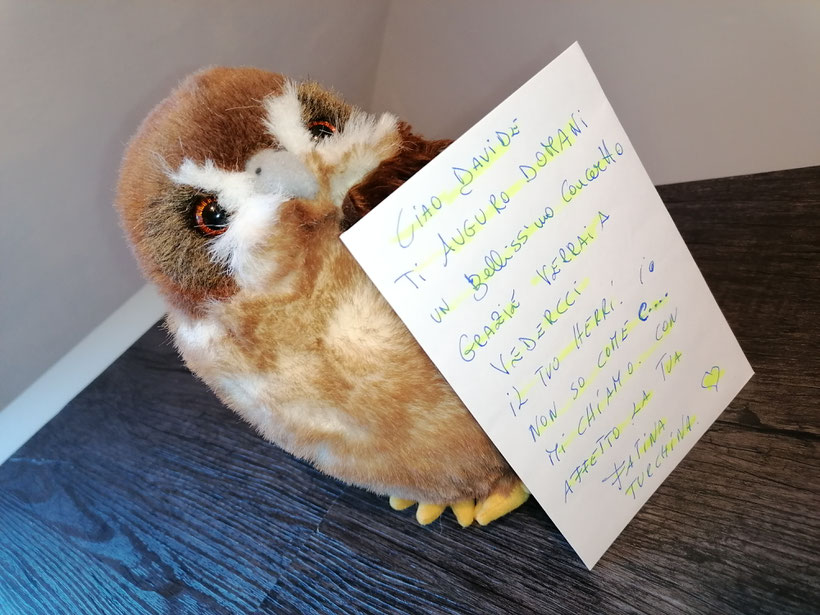 CIAO DAVIDE
TI AUGURO DOMANI
UN BELLISSIMO CONCERTO
GRAZIE VERRAI A
VEDERCCI
IL TUO HERRI! IO
NON SO COME C...
MI CHIAMO. CON
AFFETTO LA TUA
FATINA
TURCHINA.